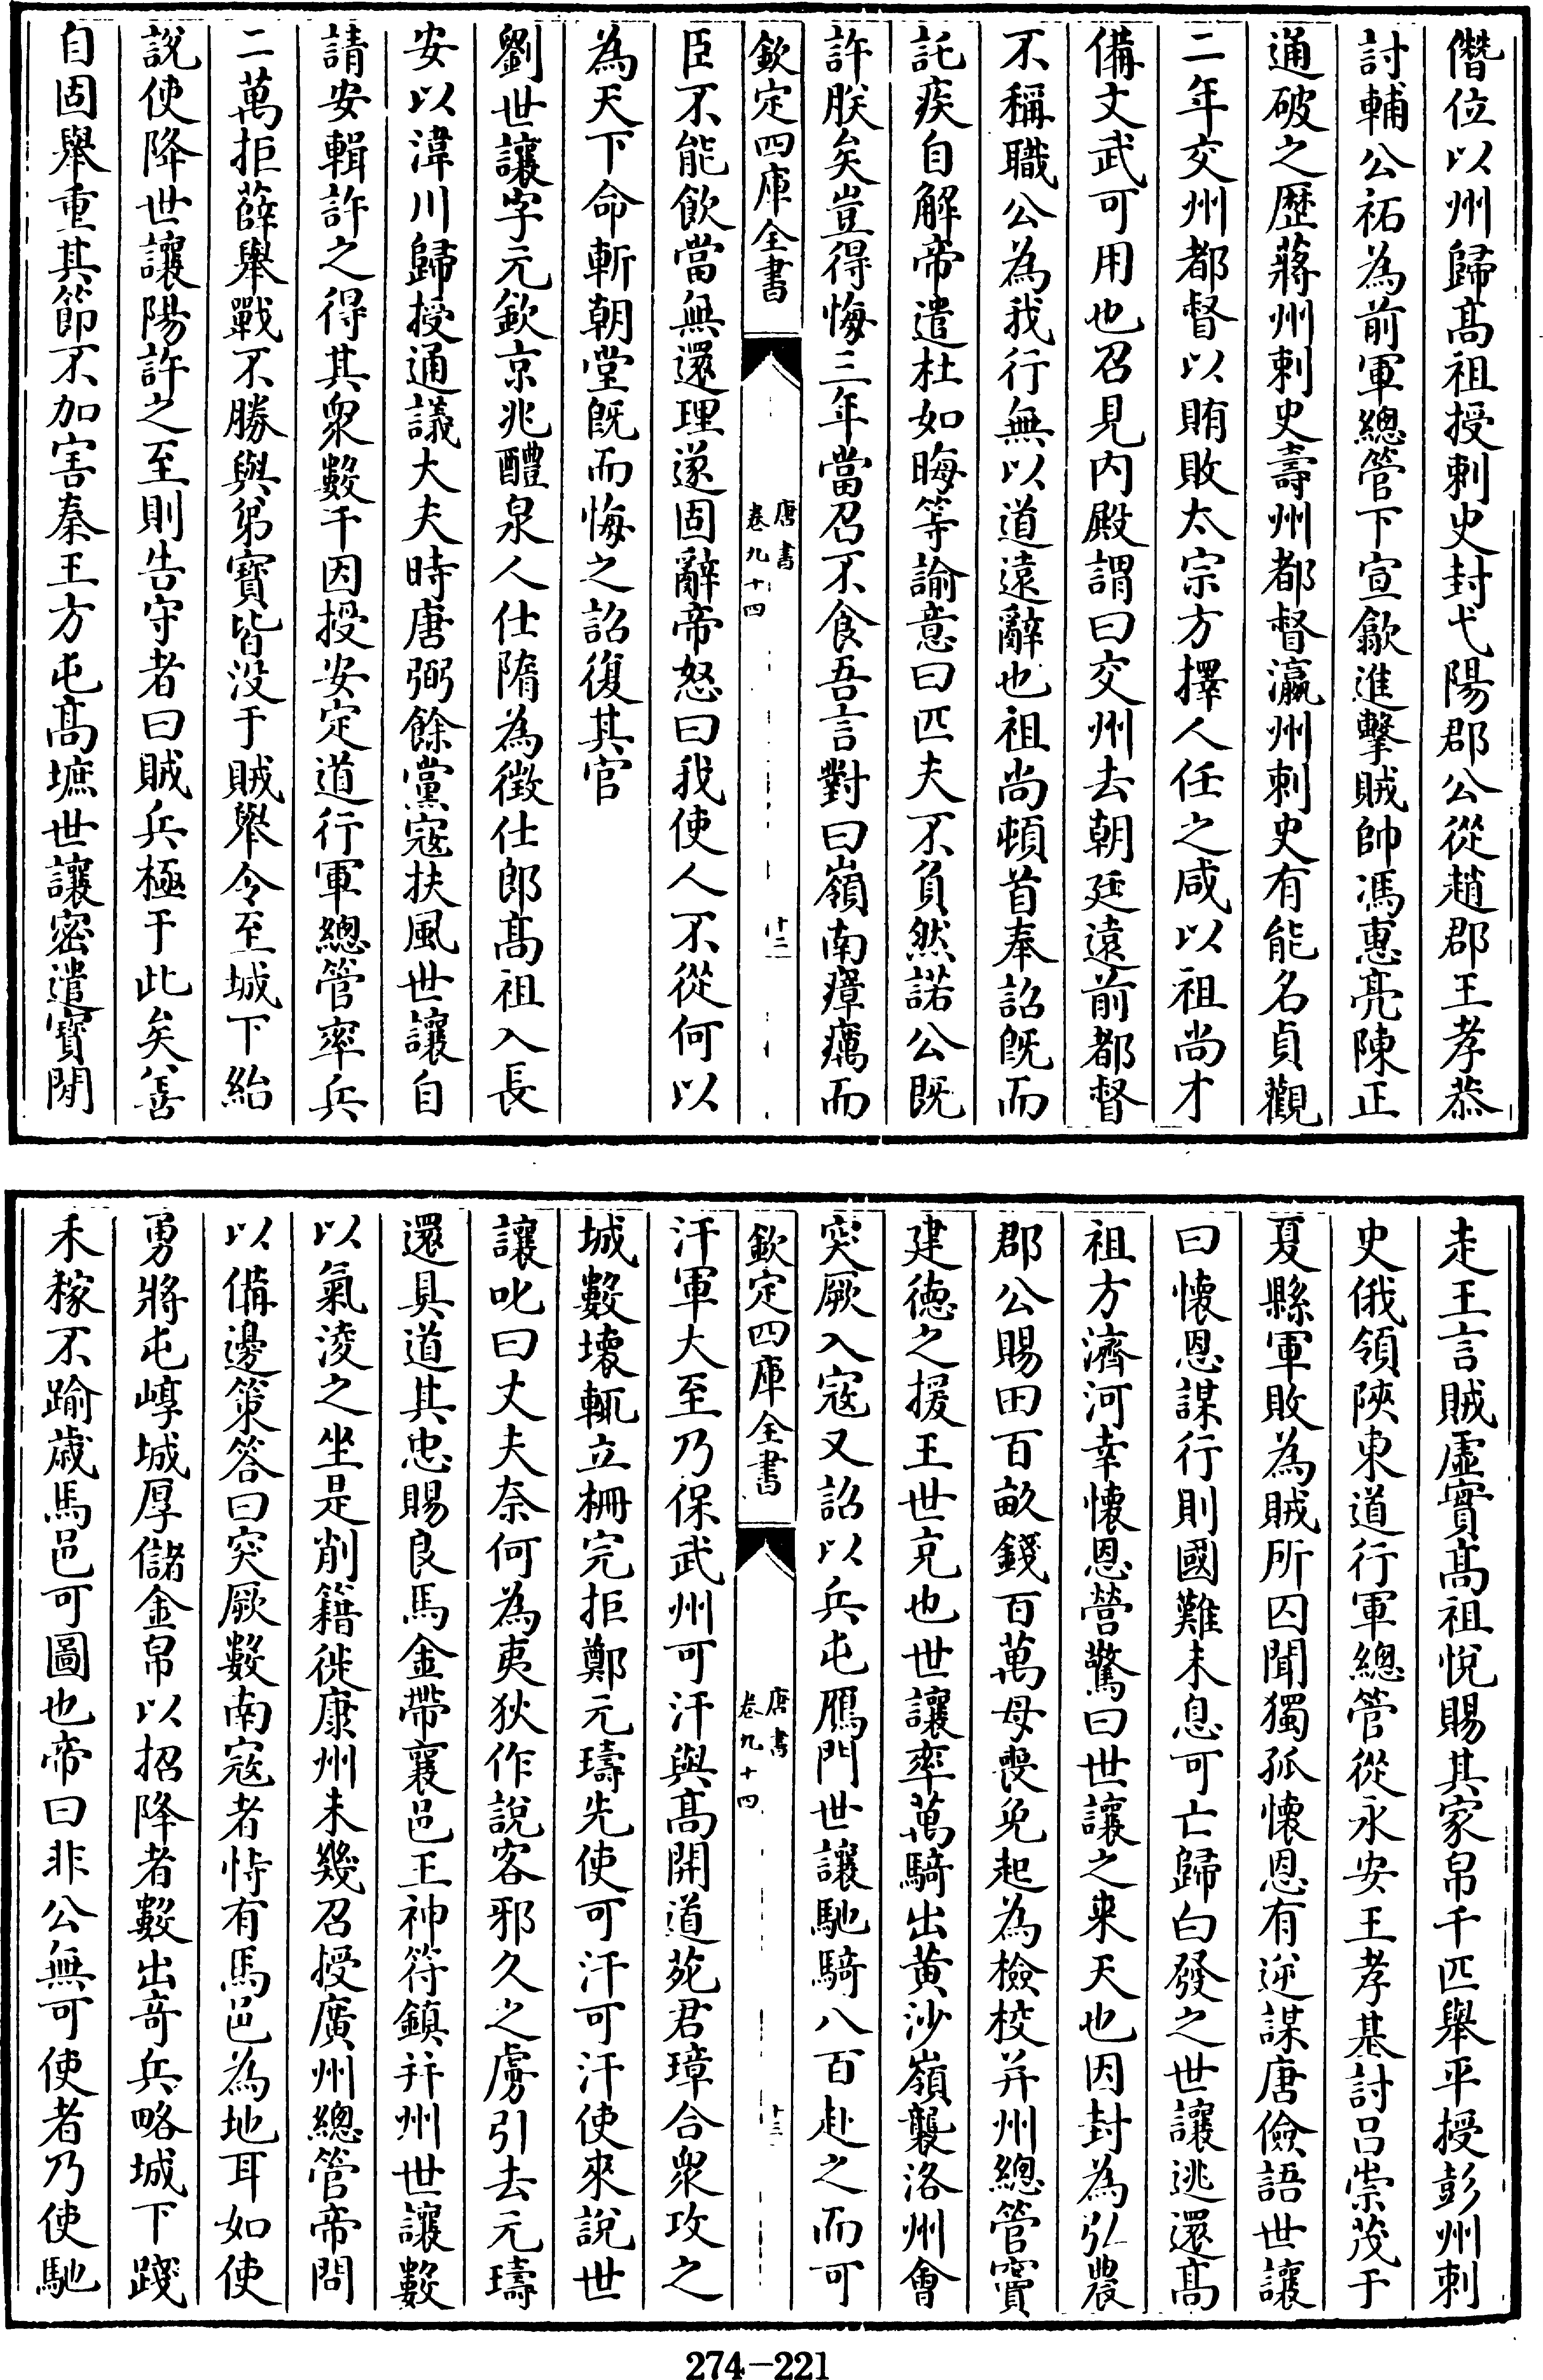 僭位以州歸髙祖授刺史封弋陽郡公從趙郡王孝恭
討輔公祏為前軍總管下宣歙進擊賊帥馮惠亮陳正
通破之歴蔣州刺史壽州都督瀛州刺史有能名貞觀
二年交州都督以賄敗太宗方擇人任之咸以祖尚才
備文武可用也召見内殿謂曰交州去朝廷遠前都督
不稱職公為我行無以道遠辭也祖尚頓首奉詔既而
託疾自解帝遣杜如晦等諭意曰匹夫不負然諾公既
許朕矣豈得悔三年當召不食吾言對曰嶺南瘴癘而
欽定四庫全書
唐書
卷九十四
十二
臣不能飲當無還理遂固辭帝怒曰我使人不從何以
為天下命斬朝堂既而悔之詔復其官
劉世讓字元欽京兆醴泉人仕隋為徵仕郎髙祖入長
安以湋川歸授通議大夫時唐弼餘黨寇扶風世讓自
請安輯許之得其衆數千因授安定道行軍總管率兵
二萬拒薛舉戰不勝與弟寳皆没于賊舉令至城下紿
說使降世讓陽許之至則告守者曰賊兵極于此矣善
自固舉重其節不加害秦王方屯髙墌世讓密遣寳閒
走王言賊虛實髙祖悅賜其家帛千匹舉平授彭州刺
史俄領陜東道行軍總管從永安王孝基討呂崇茂于
夏縣軍敗為賊所囚聞獨孤懐恩有逆謀唐儉語世讓
曰懐恩謀行則國難未息可亡歸白發之世讓逃還髙
祖方濟河幸懐恩營驚曰世讓之來天也因封為弘農
郡公賜田百畝錢百萬母喪免起為檢校并州總管竇
建徳之援王世充也世讓率萬騎出黄沙嶺襲洛州會
突厥入寇又詔以兵屯鴈門世讓馳騎八百赴之而可
欽定四庫全書
唐書
卷九十四
十三
汗軍大至乃保武州可汗與髙開道苑君璋合衆攻之
城數壞輒立柵完拒鄭元璹先使可汗可汗使來說世
讓叱曰丈夫奈何為夷狄作說客邪久之虜引去元璹
還具道其忠賜良馬金帶襄邑王神符鎮并州世讓數
以氣淩之坐是削籍徙康州未幾召授廣州總管帝問
以備邊策答曰突厥數南寇者恃有馬邑為地耳如使
勇將屯崞城厚儲金帛以招降者數出竒兵略城下踐
禾稼不踰歳馬邑可圖也帝曰非公無可使者乃使馳
274-221